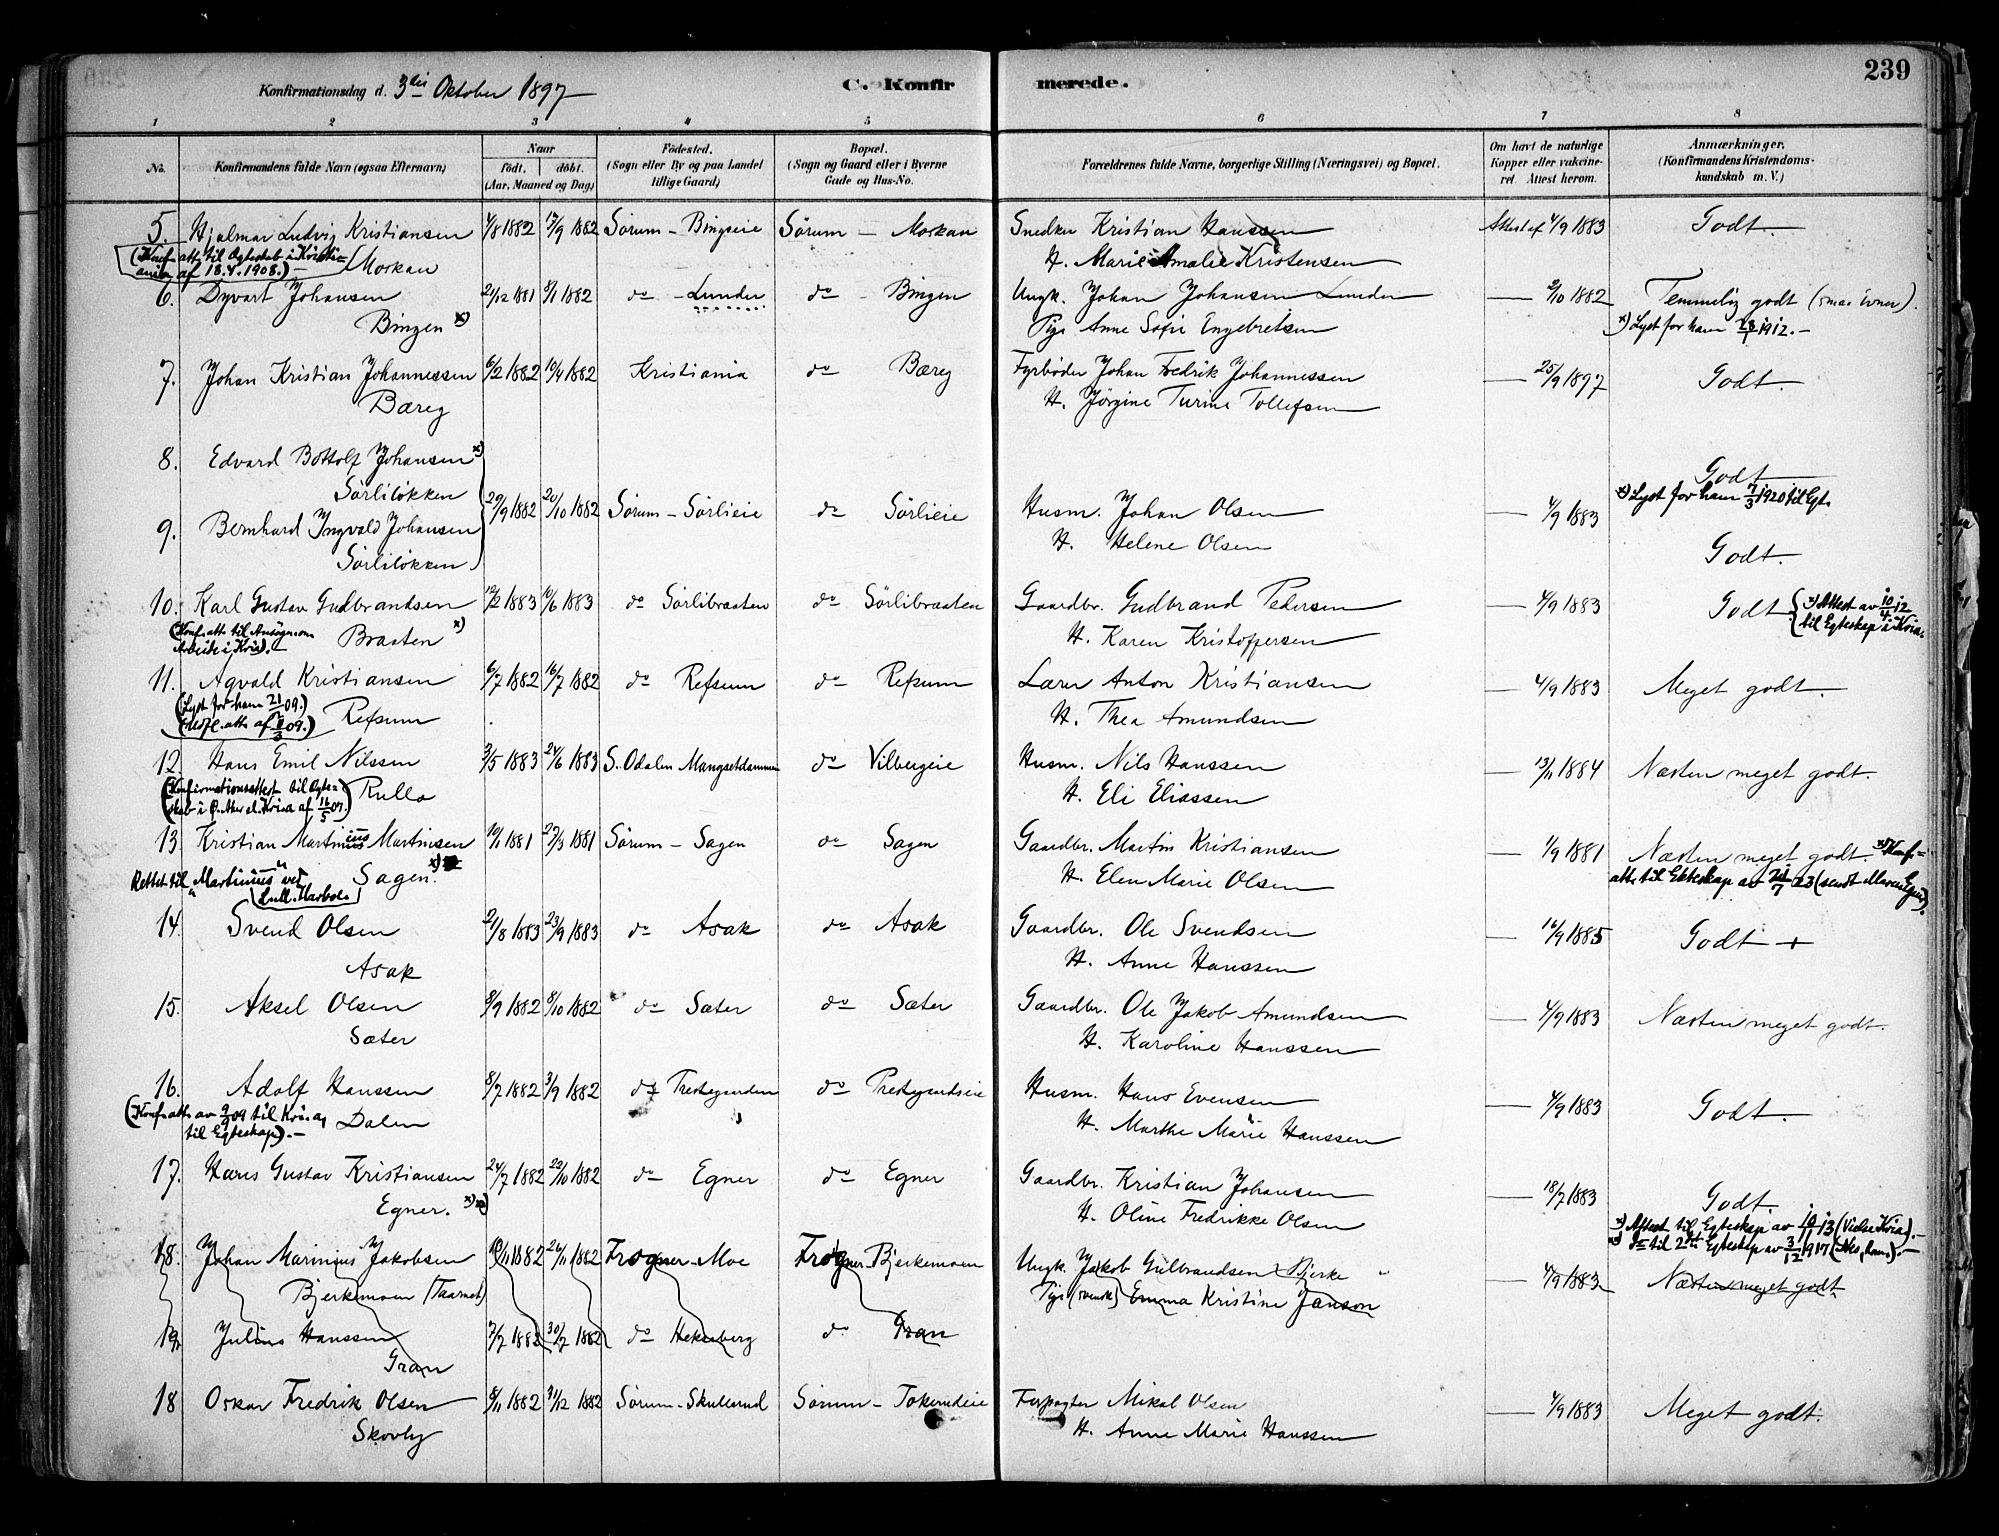 Konfirmationsdag d. 3die Oktober 1897
C. Konfirmerede.
239
1 2 3 4 5 6 7 8
No.
Konfirmandens fulde Navn (ogsaa Efternavn)
Naar
födt. döbt.
(Aar, Maaned og Dag)
Födested.
(Sogn eller By og paa Landet
tillige Gaard)
Bopæl.
(Sogn og Gaard eller i Byerne
Gade og Hus-No.
Forældrenes fulde Navne, borgerlige Stilling (Næringsvei) og Bopæl.
Om havt de naturlige
Kopper eller vakcine-
ret. Attest herom.
Anmærkninger.
(Konfirmandens Kristendoms-
kundskab m. V.)
5. Hjalmar Ludvig Kristiansen 4/8 1882 17/9 1882 Sørum - Bingseie Sørum - Moskau Snedker Kristian Hanssen Attest af 4/9 1883 Godt.
(Konf. att. til Ægteskab i Kristi-
ania af 18.4.1908.) - Moskau H. Marie Amalie Kristensen
6. Dyvart Johansen 21/12 1881 8/1 1882 do - Lunder do - Bingen Ungk. Johan Johansen Lunder — 2/10 1882 Temmelig godt (smaa evner).
Bingen x) Pige Anne Sofie Engebretsen x) Lyst for ham 28/1 1912. -
7. Johan Kristian Johannessen 6/2 1882 10/4 1882 Kristiania do Bæreg Fyrbøder Johan Fredrik Johannessen — 25/9 1897 Godt.
Bæreg H. Jörgine Turine Tollefsen
8. Edvard Bottolf Johansen x) Godt
Sörlilökken x) Lyst for ham 7/3 1920 til Egt.
29/9 1882 20/10 1882 Sørum - Sörlieie do Sörlieie Husm. Johan Olsen — 4/9 1883
9. Bernhard Ingvald Johansen H. Helene Olsen Godt.
Sörlilökken
10. Karl Gustav Gudbrandsen 12/2 1883 10/6 1883 do Sörlibraaten do Sörlibraaten Gaardbr. Gudbrand Pedersen — 4/9 1883 Godt. x) Attest av 10/4 12
(Konf. att. til Ansögn. om Braaten x) H. Karen Kristoffersen til Egteskap i Kria.
Arbeide i Kria).
11. Agvald Kristiansen 6/7 1882 16/7 1882 do Refsum do Refsum Lærer Anton Kristiansen — 4/9 1883 Meget godt.
(Lyst for ham
Refsum H. Thea Amundsen
12. Hans Emil Nilssen 3/5 1883 24/6 1883 S. Odalen Mangsetdammen do Vilbergeie Husm. Nils Hanssen — 13/11 1884 Næsten meget godt.
(Konfirmationsattest til Ægte- Rullo H. Eli Eliassen
skab i Ø. Aker el. Kria af 16/5 07.)
13. Kristian Martinius Martinsen 10/1 1881 27/3 1881 Sørum - Sagen do Sagen Gaardbr. Martin Kristiansen — 4/9 1881 Næsten meget godt. x) Konf.-
Rettet til "Martinius" ved Sagen. x) H. Elen Marie Olsen att. til Ekteskap av
14. Svend Olsen 21/8 1883 23/9 1883 do Asak do Asak Gaardbr. Ole Svendsen — 16/9 1885 Godt +
Asak H. Anne Hanssen
15. Aksel Olsen 8/9 1882 8/10 1882 do Sæter do Sæter Gaardbr. Ole Jakob Amundsen — 4/9 1883 Næsten meget godt.
Sæter H. Karoline Hanssen
16. Adolf Hanssen 8/7 1882 3/9 1882 do Prestegaarden do Prestegaardseie Husm. Hans Evensen — 4/9 1883 Godt.
(Konf. att. av 9/9 09 til Kria, Dalen H. Marthe Marie Hanssen
til Egteskap). -
17. Hans Gustav Kristiansen 24/7 1882 22/10 1882 do Egner do Egner Gaardbr. Kristian Johansen — 18/7 1883 Godt.
Egner. x) H. Oline Fredrikke Olsen x) Attest til Egteskap av 13 (Vielse Kria). -
do til 2det Egteskap av 3/12 1917
18. Johan Marinius Jakobsen 10/11 1882 26/11 1882 Frogner - Moe Frogner - Bjerkemoen Ungk. Jakob Gulbrandsen Bjerke — 4/9 1883 Næsten meget godt
Bjerkemoen (Taarnet) Pige (svensk) Emma Kristine Janson
19. Julius Hanssen 7/7 1882 30/7 1882 do Hekseberg do Gran
Gran
18 Oskar Fredrik Olsen 8/11 1882 31/12 1882 Sørum - Skullerud Sørum - Tokerudeie Forpagter Mikal Olsen — 4/9 1883 Meget godt.
Skovly H. Anne Marie Hanssen